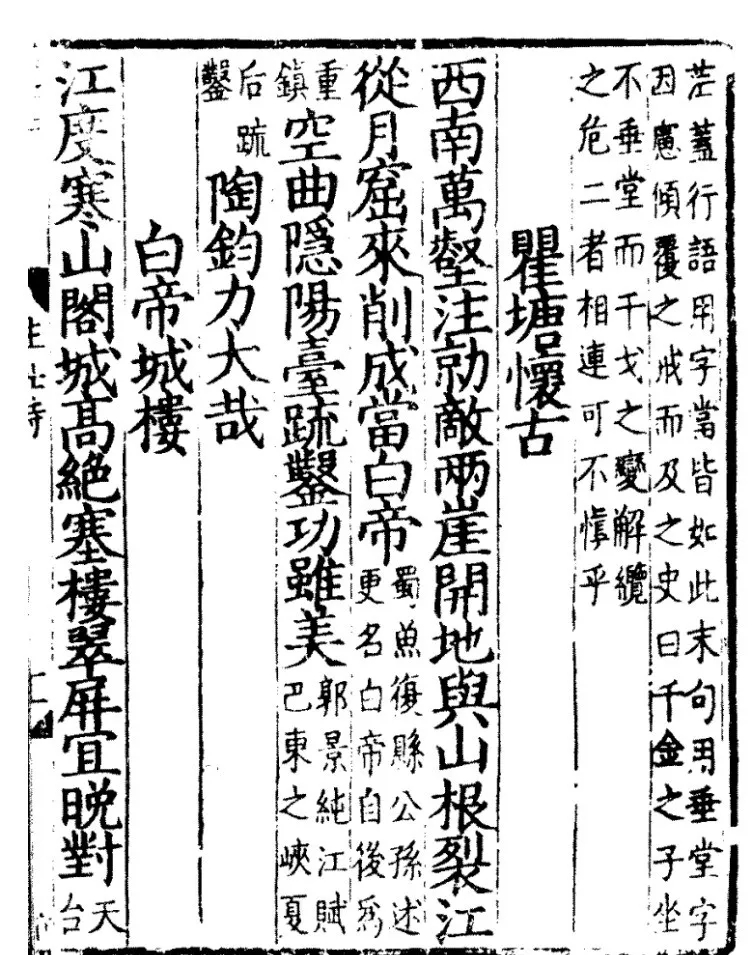 蓋行語用字當皆如此末句用垂堂字
因憲傾覆之戒而及之史曰千金之子坐
不垂堂而干戈之變解纜
之危二者相連可不慎乎
瞿塘懷古
西南萬壑注勍敵兩崖開地與山根裂江
從月窟來削成當白帝蜀魚復縣公孫述
更名白帝自後為
重
鎮
空曲隱陽臺疏鑿功雖美郭景純江賦
巴東之峽夏
后疏
鑿
陶鈞力大哉
白帝城樓
江度寒山閣城高絶塞樓翠屏宜晚對天
台